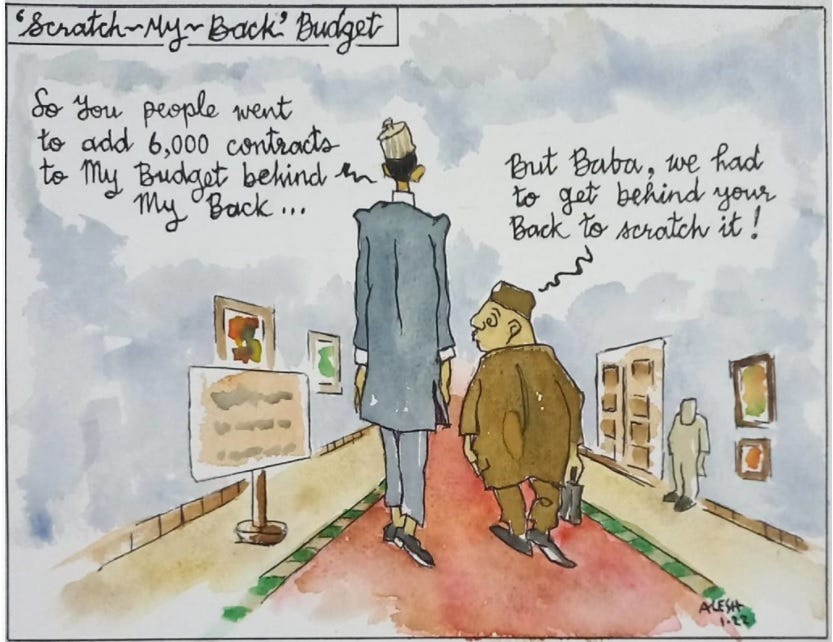 'Scratch~My~Back' Budget
So You people went
to add 6,000 contracts
to My Budget behind
My Back...
But Baba, we had
to get behind your
Back to scratch it!
ALESH
1.22